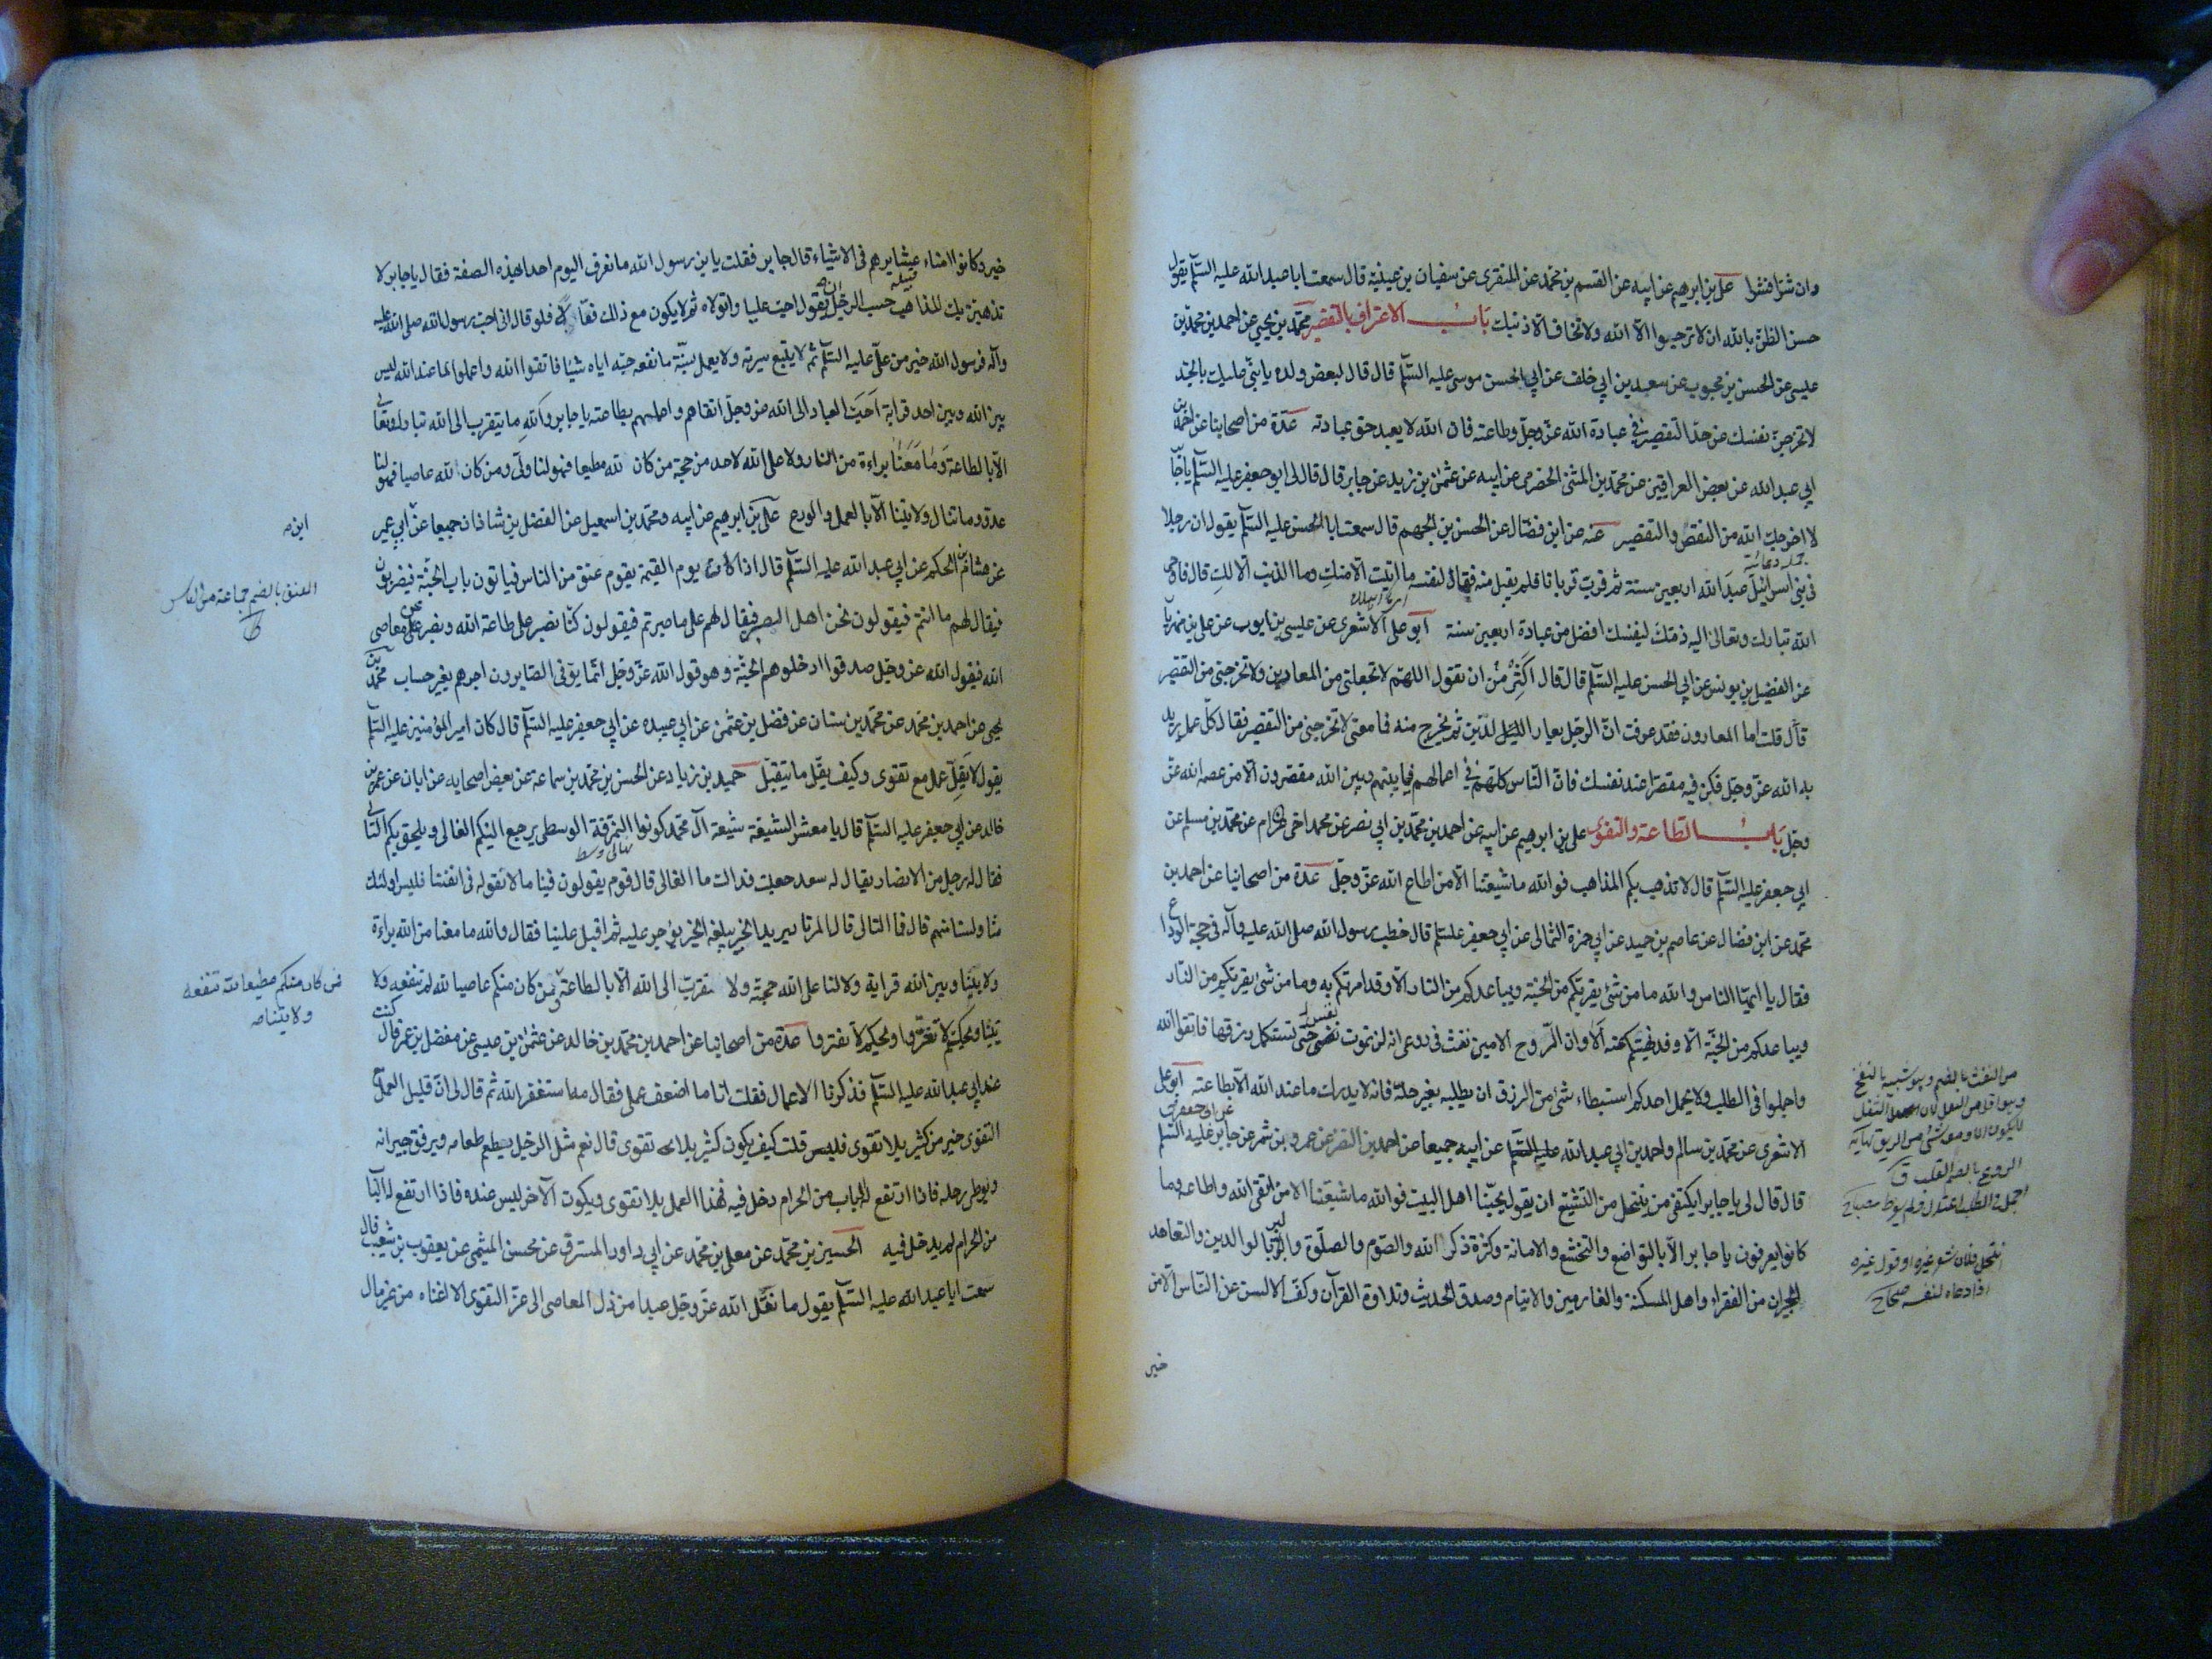 وان شرّا فشرا علي بن ابرهيم عن ابيه عن القسم بن محمد عن المنقرى عن سفيان بن عيينة قال سمعت ابا عبد الله عليه السّلم يقول
حسن الظنّ بالله ان لا ترجوا الّا الله ولا تخاف الّا ذنبك باب الاعتراف بالتقصير محمّد بن يحيى عن احمد بن محمّد بن
عيسى عن الحسن بن محبوب عن سعد بن ابي خلف عن ابي الحسن موسى عليه السّلم قال قال لبعض ولده يا بنيّ عليك بالجدّ
لا تخرجنّ نفسك عن حدّ التقصير في عبادة الله عزّ وجلّ وطاعته فان الله لا يعبد حق عبادته عدّة من اصحابنا عن احمد بن
ابي عبد الله عن بعض العراقيين عن محمّد بن المثنى الحضرمى عن ابيه عن عثمن بن زيد عن جابر قال قال لى ابو جعفر عليه السّلم يا جا
لا اخرجك الله من النقص والتقصير عنه عن ابن فضّال عن الحسن بن الجهم قال سمعت ابا الحسن عليه السّلم يقول ان رجلا
جملة دعائية
فى بني اسرائيل عبد الله اربعين سنة ثم قرب قربانا فلم يقبل منه فقال لنفسه ما اتيت الّا منك وما الذنب الّا لك قال فاوحى
الله تبارك وتعالى اليه ذمّك لنفسك افضل من عبادة اربعين سنة ابو على الاشعرى عن عيسى بن ايوب عن على بن مهزيا
عن الفضيل بن يونس عن ابي الحسن عليه السّلم قال قال اكثر من ان تقول اللهم لا تجعلنى من المعارين ولا تخرجنى من التقصير
قال قلت اما المعارون فقد عرفت انّ الرجل يعار الدّين ثم يخرج منه فما معنى لا تخرجنى من التقصير فقال كلّ عمل تريد
به الله عزّ وجلّ فكن فيه مقصّرا عند نفسك فانّ النّاس كلّهم فى اعمالهم فيما بينهم وبين الله مقصّرون الّا من عصمه الله عزّ
وجلّ باب الطاعة والتقوى على بن ابرهيم عن ابيه عن احمد بن محمّد بن ابي نصر عن محمد اخى عرام عن محمّد بن مسلم عن
ابي جعفر عليه السّلم قال لا تذهب بكم المذاهب فوالله ما شيعتنا الّا من اطاع الله عزّ وجلّ عدّة من اصحابنا عن احمد بن
محمّد عن ابن فضال عن عاصم بن حميد عن ابي حمزة الثمالى عن ابي جعفر عليه السلم قال خطب رسول الله صلى الله عليه وآله فى حجة الوداع
فقال يا ايّها النّاس والله ما من شئ يقرّبكم من الجنّة ويباعدكم من النّار الّا وقد امرتكم به وما من شئ يقرّبكم من النّار
ويباعدكم من الجنّة الّا وقد نهيتكم عنه الا وان الرّوح الامين نفث فى روعى انه لن تموت نفس حتى تستكمل رزقها فاتقوا الله
واجملوا فى الطلب ولا يحمل احدكم استبطاء شئ من الرزق ان يطلبه بغير حلّه فانه لا يدرك ما عند الله الّا بطاعته ابو على
الاشعرى عن محمّد بن سالم واحمد بن ابي عبد الله عن ابيه جميعا عن احمد بن النضر عن عمرو بن شمر عن جابر عن ابى جعفر عليه السّلم
قال قال لى يا جابر ايكتفى من ينتحل من التشيّع ان يقول بحبّنا اهل البيت فوالله ما شيعتنا الا من اتقى الله واطاعه وما
كانوا يعرفون يا جابر الّا بالتواضع والتخشّع والامانة وكثرة ذكر الله والصّوم والصلوة والبرّ بالوالدين والتعاهد
للجيران من الفقراء واهل المسكنة والغارمين والايتام وصدق الحديث وتلاوة القرآن وكفّ الالسن عن النّاس الّا من
خير
من النفث بالفم وهو شبيه بالنفخ
وهو اقل من التفل لان التفل
لا يكون الا ومعه شئ من الريق نهاية
الروع بالضم القلب ق
اجمل فى الطلب اعتدل ولم يفرط مصباح
انتحل فلان شعر غيره او قول غيره
اذا ادعاه لنفسه صحاح
خير وكانوا امناء عشايرهم فى الاشياء قال جابر فقلت يا بن رسول الله ما نعرف اليوم احدا بهذه الصفة فقال يا جابر لا
تذهبنّ بك المذاهب حسب الرّجل ان يقول احبّ عليا واتولاه ثم لا يكون مع ذلك فعّالا فلو قال انى احبّ رسول الله صلى الله عليه
وآله فرسول الله خير من علىّ عليه السّلم ثم لا يتّبع سيرته ولا يعمل بسنّته ما نفعه حبّه اياه شيئا فاتقوا الله واعملوا لما عند الله ليس
بين الله وبين احد قرابة احبّ العباد الى الله عز وجلّ اتقاهم واعملهم بطاعته يا جابر والله ما يتقرب الى الله تبارك وتعالى
الّا بالطاعة وما معنا براءة من النار ولا على الله لاحد من حجّة من كان لله مطيعا فهو لنا ولىّ ومن كان لله عاصيا فهو لنا
عدوّ وما تنال ولايتنا الّا بالعمل والورع علىّ بن ابرهيم عن ابيه ومحمّد بن اسمعيل عن الفضل بن شاذان جميعا عن ابي عمير
عن هشام بن الحكم عن ابي عبد الله عليه السّلم قال اذا كان يوم القيمة يقوم عنق من الناس فياتون باب الجنّة فيضربون
فيقال لهم ما انتم فيقولون نحن اهل الصبر فيقال لهم على ما صبرتم فيقولون كنّا نصبر على طاعة الله ونصبر عن معاصى
الله فيقول الله عز وجل صدقوا ادخلوهم الجنّة وهو قول الله عزّ وجل انّما يوفى الصّابرون اجرهم بغير حساب محمّد بن
يحيى عن احمد بن محمّد عن محمّد بن سنان عن فضل بن عثمن عن ابي عبيده عن ابي جعفر عليه السّلم قال كان امير المؤمنين عليه السّلم
يقول لا يقلّ عمل مع تقوى وكيف يقلّ ما يتقبّل حميد بن زياد عن الحسن بن محمّد بن سماعة عن بعض اصحابه عن ابان عن عمرو بن
خالد عن ابي جعفر عليه السّلم قال يا معشر الشيعة شيعة آل محمّد كونوا النمرقة الوسطى يرجع اليكم الغالى ويلحق بكم التّالى
فقال له رجل من الانصار يقال له سعد جعلت فداك ما الغالى قال قوم يقولون فينا ما لا نقوله فى انفسنا فليس اولئك
منّا ولسنا منهم قال فما التالى قال المرتاد يريد الخير يبلغه الخير يؤجر عليه ثم اقبل علينا فقال والله ما معنا من الله براءة
ولا بيننا وبين الله قرابة ولا لنا على الله حجّة ولا نتقرّب الى الله الّا بالطاعة فمن كان منكم عاصيا لله لم تنفعه ولا
يتنا ويحكم لا تغترّوا ويحكم لا تغتروا عدّة من اصحابنا عن احمد بن محمّد بن خالد عن عثمن بن عيسى عن مفضل بن عمر قال كنت
عند ابي عبد الله عليه السّلم فذكرنا الاعمال فقلت انا ما اضعف عملى فقال مه استغفر الله ثم قال لى انّ قليل العمل مع
التقوى خير من كثير بلا تقوى قلت كيف يكون كثير بلا تقوى قال نعم مثل الرّجل يطعم طعامه ويرفق جيرانه
ويوطئ رحله فاذا ارتفع له الباب من الحرام دخل فيه فهذا العمل بلا تقوى ويكون الآخر ليس عنده فاذا ارتفع له البا
من الحرام لم يدخل فيه الحسين بن محمّد عن معلى بن محمّد عن ابي داود المسترق عن محسن الميثمى عن يعقوب بن شعيب قال
سمعت ابا عبد الله عليه السّلم يقول ما نقل الله عزّ وجل عبدا من ذل المعاصى الى عزّ التقوى الا اغناه من غير مال
ابن
العنق بالضم جماعة من الناس
فمن كان منكم مطيعا لله تنفعه
ولايتنا